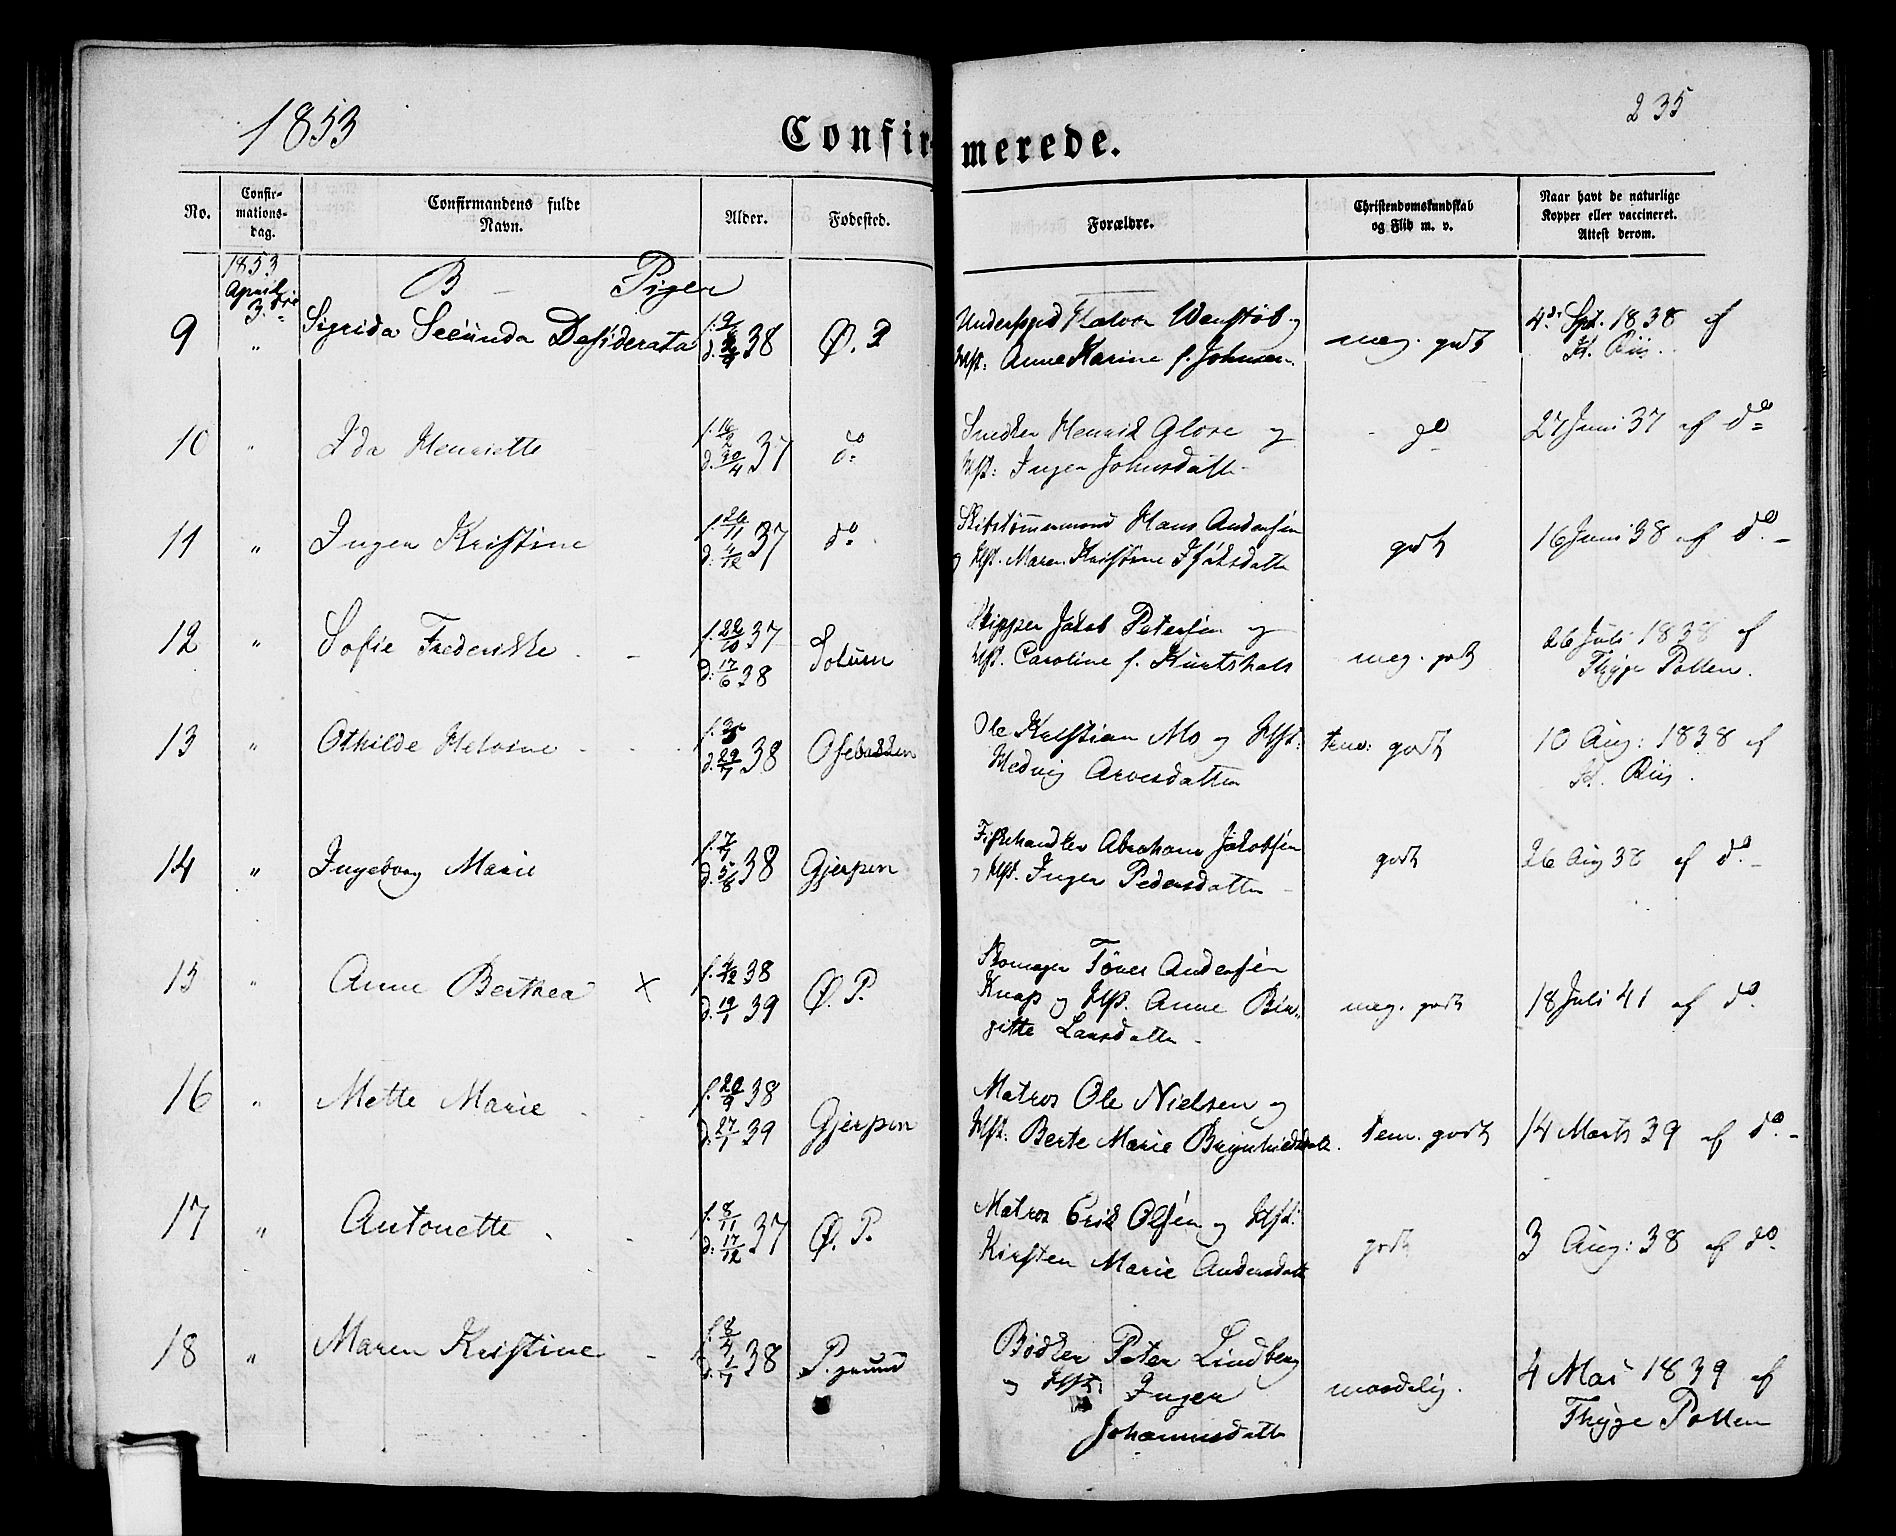 1853
235
Confirmerede.
No.
Confir-
mations-
dag.
Confirmandens fulde
Navn.
Alder.
Fødested.
Forældre.
Christendomskundskab
og Flid m. v.
Naar havt de naturlige
Kopper eller vaccineret.
Attest derom.
1853
April
3.
B - Piger
9 " Sigrida Secunda Desiderata 38 Ø. P
Halvor Wenstøb og
Hst: Anne Karine f. Johnsen.
meg. godt
4de Spt. 1838 af
H. Riis.
10 " Ida Henriette f. 16/2 d. 30/4 37 do
Snedker Henrik Glore og
Hst: Inger Johnsdatter
do
27 Juni 37 af do
11 " Inger Kristine f. 26/11 37 do
Skibstømmermand Hans Andersen
og Hst. Maren Kristine Isaksdatter
godt
16 Juni 38 af do. -
12 " Sofie Frederikke - f. 22/10 37
d: 17/6 38 Solum
Skipper Jakob Petersen og
Hst. Caroline f. Kurtshals
meg. godt
26 Juli 1838 af
Thyge Possen.
13 " Othilde Helvine d. 29/7 38 Osebakken
Ole Kristian Mo og Hst:
Hedvig Arvesdatter
tem: godt
10 Aug: 1838 af
H. Riis.
14 " Ingeborg Marie d. 5/8 38 Gjerpen
Fiskehandler Abraham Jakobsen
og Hst. Inger Pedersdatter
godt
26 Aug 38 af do. -
15 " Anne Berthea X 38
d. 19/1 39 Ø. P.
Skomager Tønes Andersen
Knap og Hst. Anne Bir-
gitte Larsdatter -
meg. godt
18 Juli 41 af do.
16 " Mette Marie f. 20/9 38
d. 27/1 39 Gjerpen
Matros Ole Nielsen og
Hst: Berte Marie
tem. godt
14 Marts 39 af do. -
17 " Antonette f. 8/11 d: 17/12 37 Ø. P.
Matros Erik Olsen og Hst:
Kirsten Marie Andersdatt
godt
3 Aug: 38 af do.
18 " Maren Kristine - 38 P. grund
Bødker Peter Lindberg
og Hst. Inger
Johannesdatter
maadelig.
4 Mai 1839 af
Thyge Possen